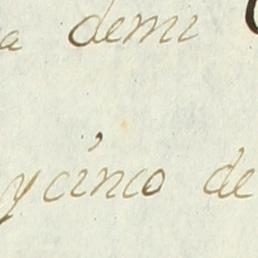 a demi
y cinco de